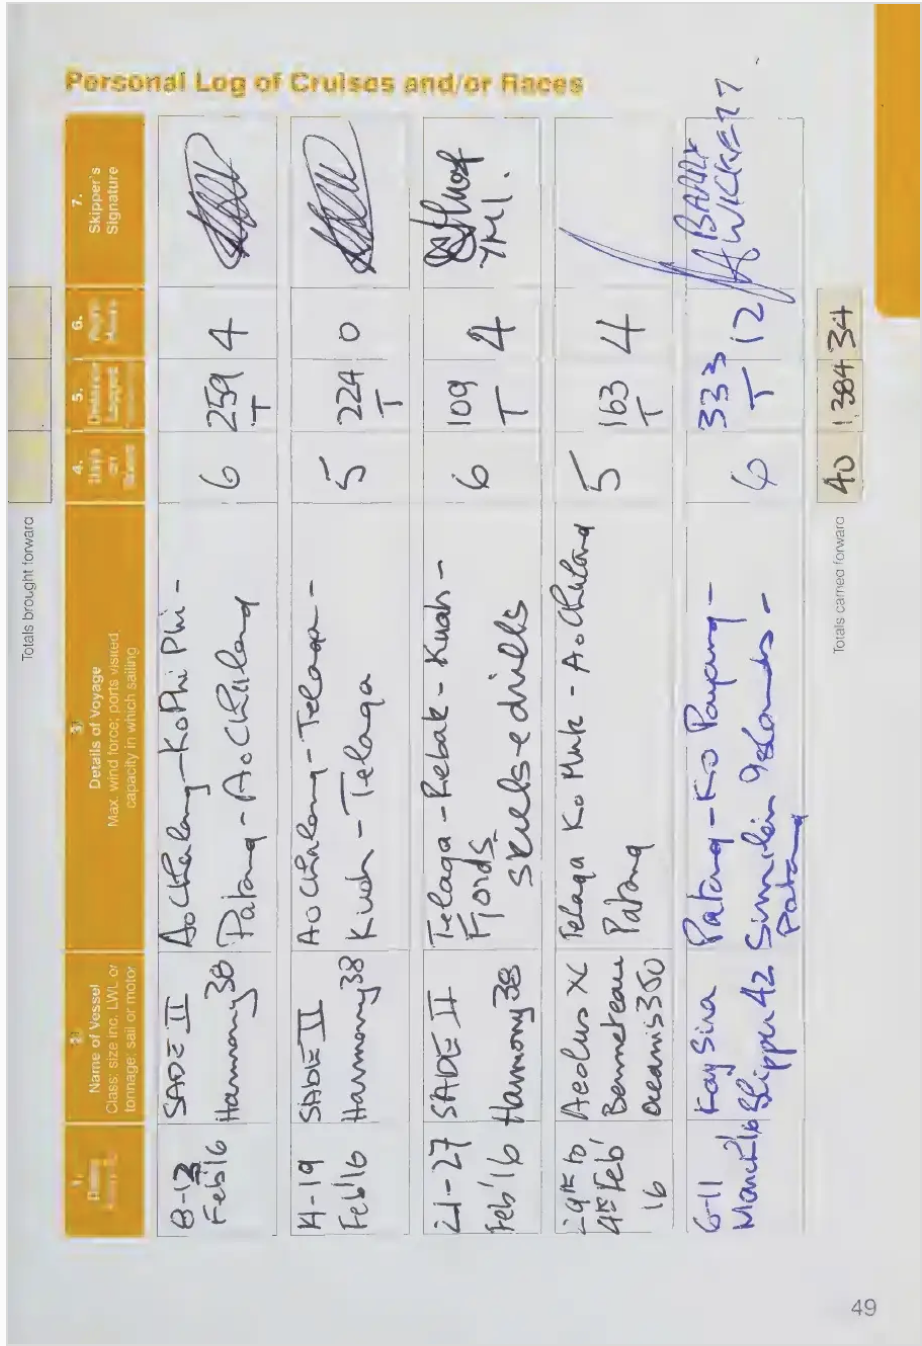 Personal Log of Cruises and/or Races
Totals brought forward
2.
Name of Vessel
Class: size inc. LWL or
tonnage: sail or motor
3.
Details of Voyage
Max. wind force; ports visited;
capacity in which sailing
4.
Days
on
Board
5.
Distance
Logged
6.
Night
Hours
7.
Skipper's
Signature
8-13
Feb'16
SADE II
Harmony 38
Ao Chalong - Ko Phi Phi -
Patong - Ao Chalong
6
259
T
4
14-19
Feb'16
SADE II
Harmony 38
Ao Chalong - Telaga -
Kuah - Telaga
5
224
T
0
21-27
Feb'16
SADE II
Harmony 38
Telaga - Rebak - Kuah -
Fjords.
skills-e drills
6
109
T
4
YMI.
29th to
4th Feb'
16
Aeolus XC
Benneteau
Oceanis 350
Telaga Ko Muk - Ao Chalong
Patong
5
163
T
4
6-11
March'16
Kay Sira
Shipper 42
Patong - Ko Payang -
Similan Islands -
Patong
6
333
T
12
Totals carried forward
40
1,384
34
49